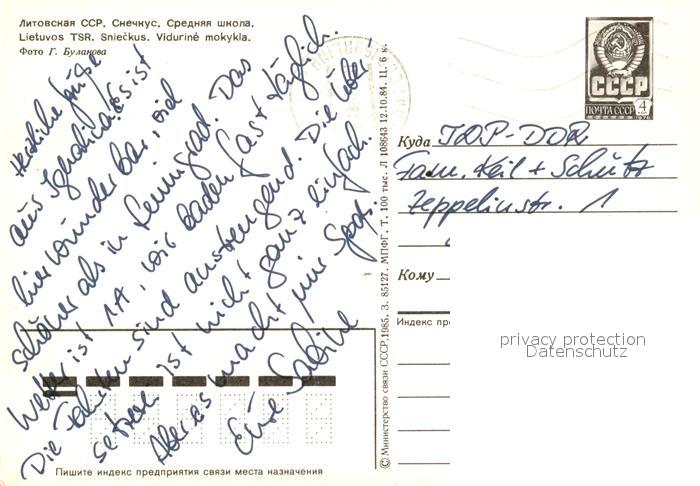 Литовская ССР. Снечкус. Средняя школа.
Lietuvos TSR. Sniečkus. Vidurinė mokykla.
Фото Г. Буланова
Herzliche Grüße
aus Ignalina. Es ist
hier wunderbar, viel
schöner als in Leningrad. Das
Wetter ist 1A, wir baden fast täglich.
Die Fahrten sind anstrengend. Die Über-
setzerei ist nicht ganz einfach.
Aber es macht mir Spaß.
Eure Sabine
Пишите индекс предприятия связи места назначения
© Министерство связи СССР, 1985. З. 85127. МПФГ. Т. 100 тыс. Л 108643 12.10.84. Ц. 6 к.
СССР
ПОЧТА СССР 4
1976
Куда ГДР-DDR
Fam. Keil + Schütz
Zeppelinstr. 1
Кому
Индекс пр
privacy protection
Datenschutz